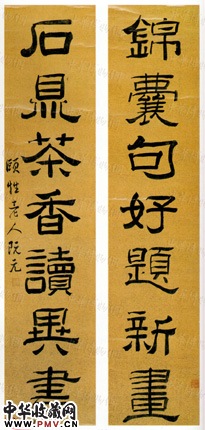 錦囊句好題新畫
石鼎茶香讀異書
頤性老人阮元
中华收藏网
www.PMV.cn